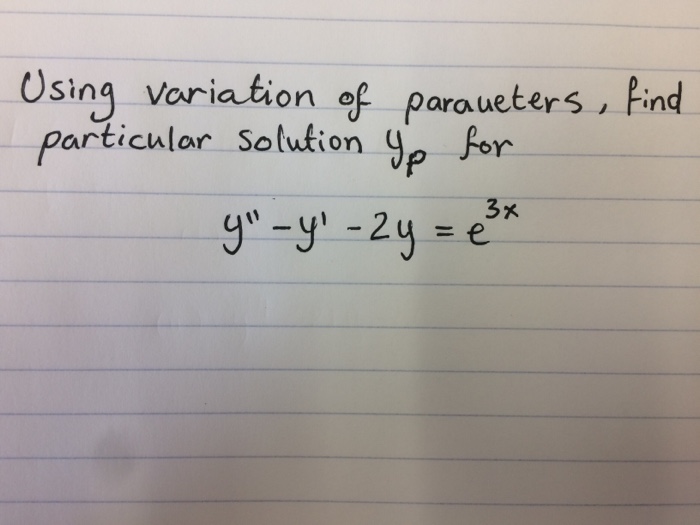 Using variation of paraueters, find
particular solution yp for
y" - y' - 2y = e^3x